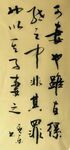 可妻也虽在缧
绁之中非其罪
也以其子妻之